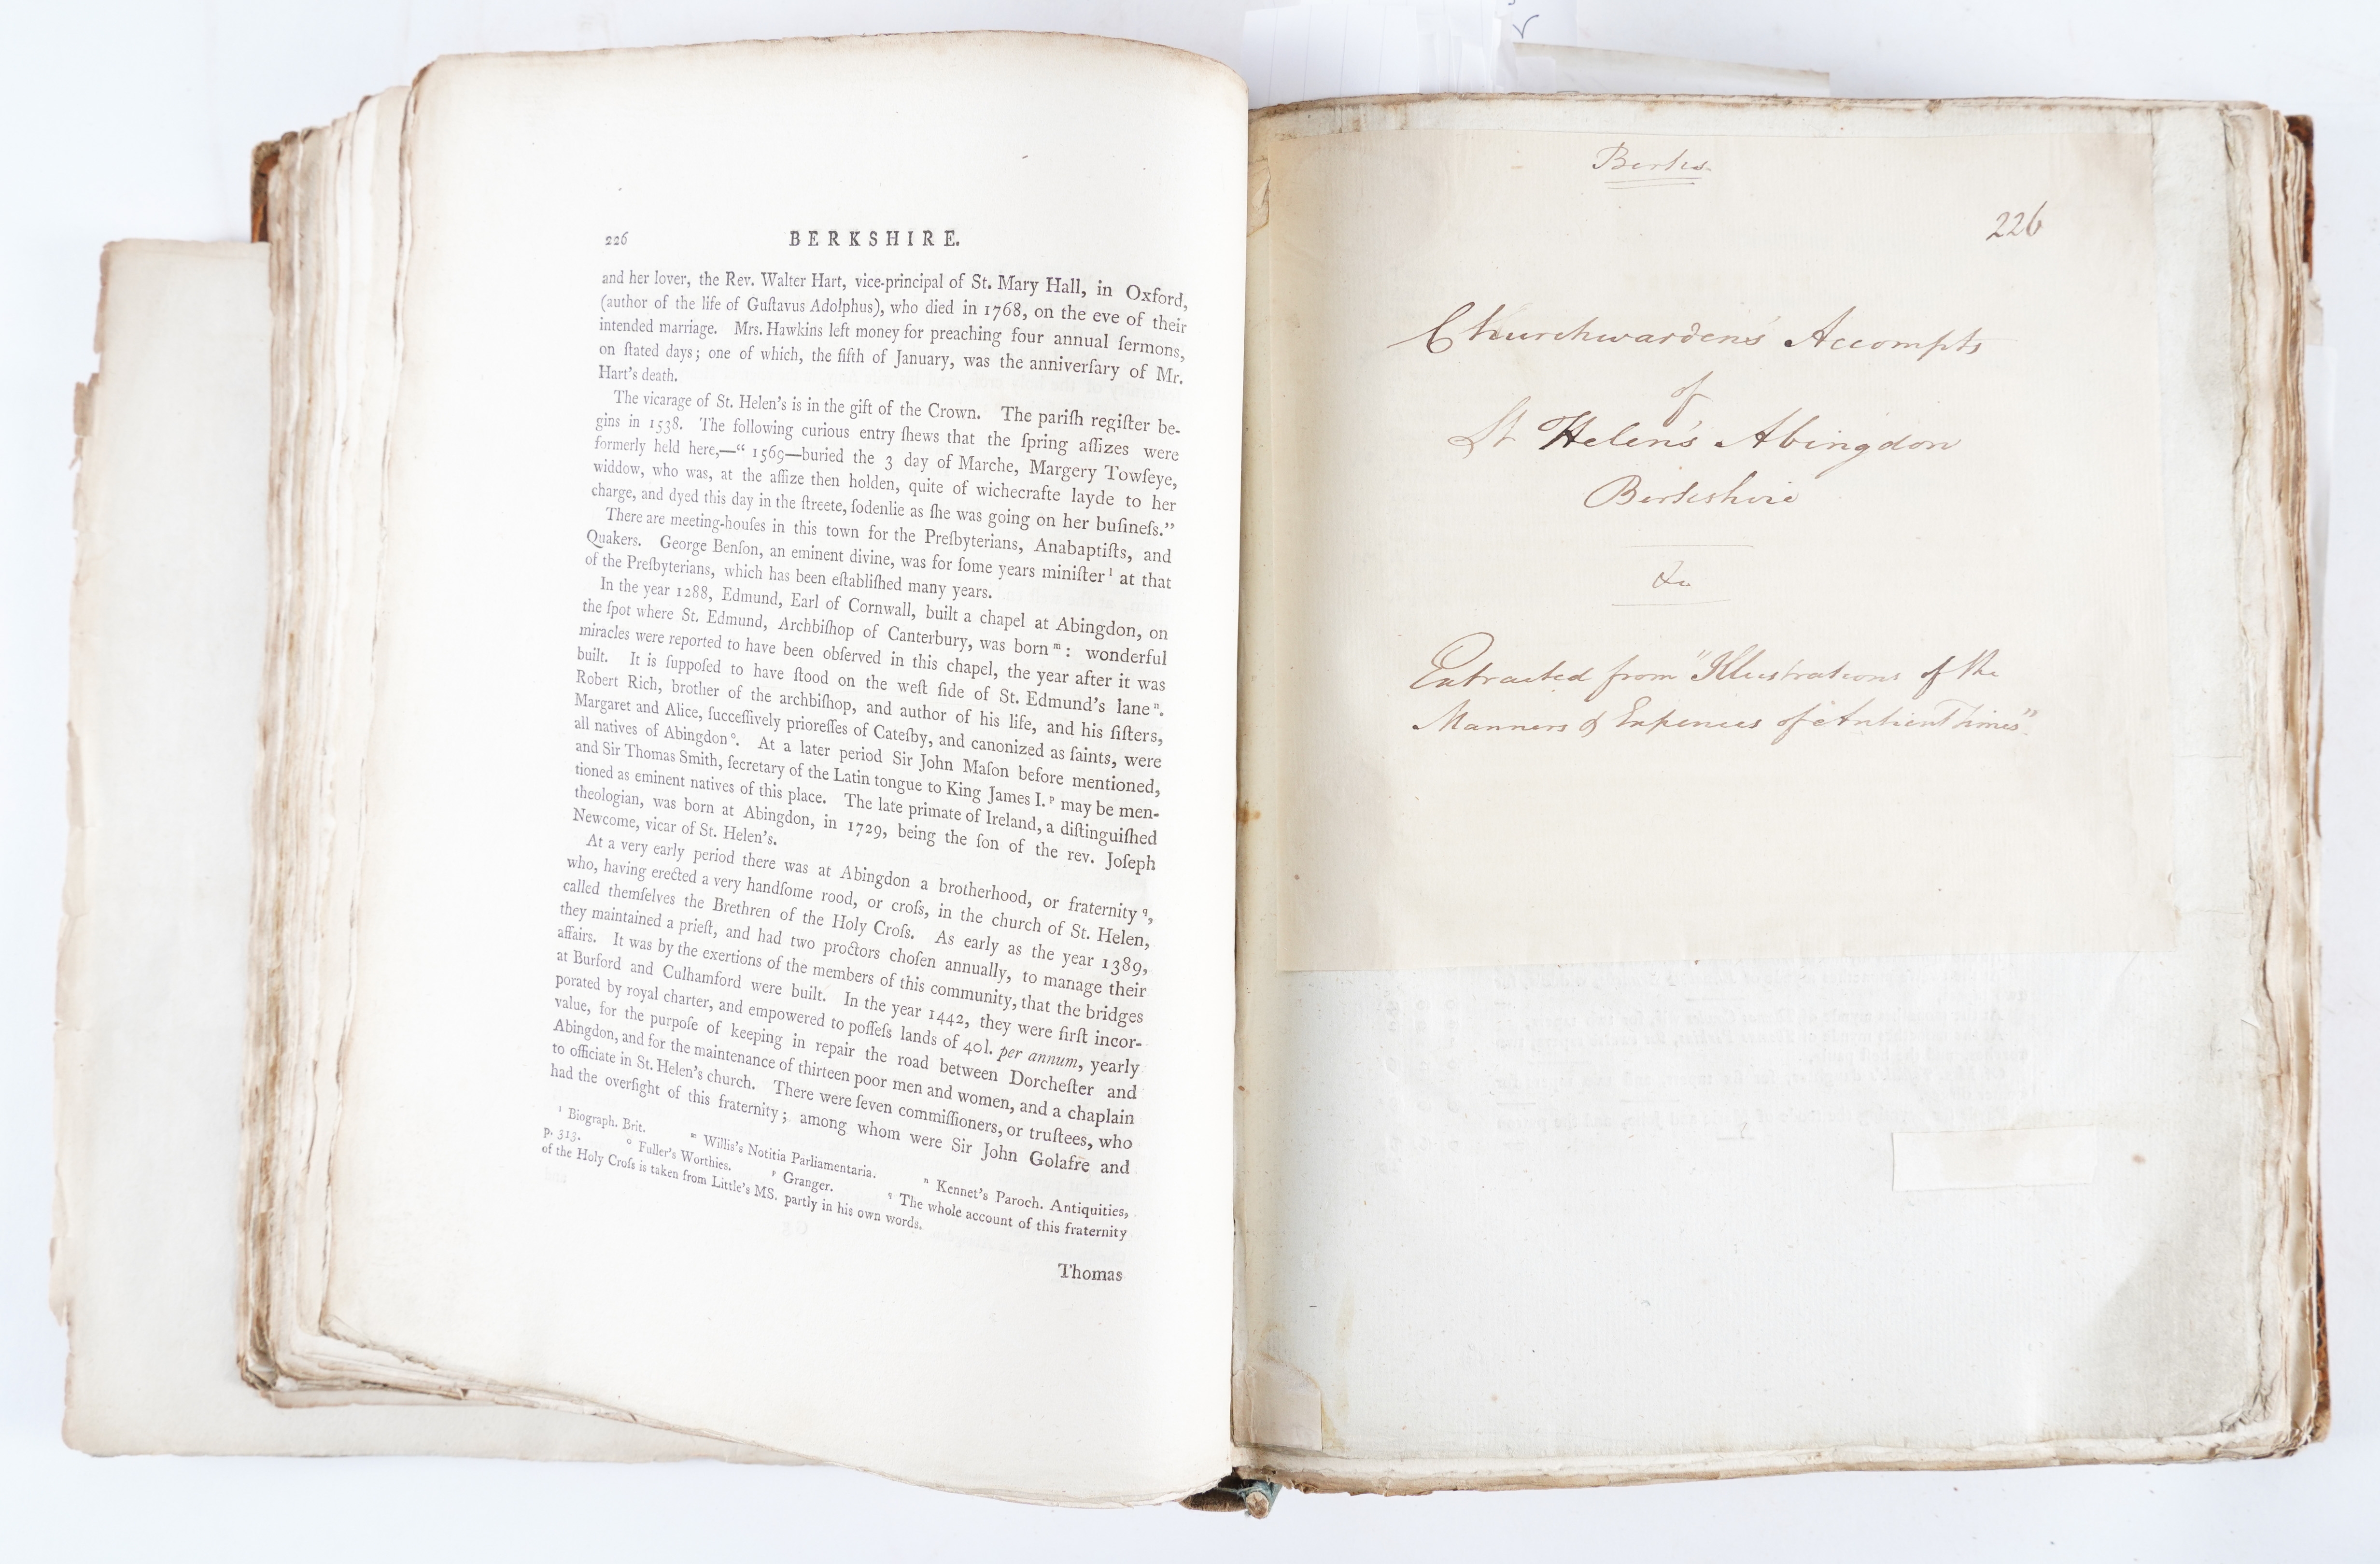 226 BERKSHIRE.
and her lover, the Rev. Walter Hart, vice-principal of St. Mary Hall, in Oxford,
(author of the life of Guſtavus Adolphus), who died in 1768, on the eve of their
intended marriage. Mrs. Hawkins left money for preaching four annual ſermons,
on ſtated days; one of which, the fifth of January, was the anniverſary of Mr.
Hart's death.
The vicarage of St. Helen's is in the gift of the Crown. The pariſh regiſter be-
gins in 1538. The following curious entry ſhews that the ſpring aſſizes were
formerly held here,—“ 1569—buried the 3 day of Marche, Margery Towſeye,
widdow, who was, at the aſſize then holden, quite of wichecrafte layde to her
charge, and dyed this day in the ſtreete, ſodenlie as ſhe was going on her buſineſs.”
There are meeting-houſes in this town for the Preſbyterians, Anabaptiſts, and
Quakers. George Benſon, an eminent divine, was for ſome years miniſter l at that
of the Preſbyterians, which has been eſtabliſhed many years.
In the year 1288, Edmund, Earl of Cornwall, built a chapel at Abingdon, on
the ſpot where St. Edmund, Archbiſhop of Canterbury, was born m: wonderful
miracles were reported to have been obſerved in this chapel, the year after it was
built. It is ſuppoſed to have ſtood on the weſt ſide of St. Edmund's lane n.
Robert Rich, brother of the archbiſhop, and author of his life, and his ſiſters,
Margaret and Alice, ſucceſſively prioreſſes of Cateſby, and canonized as ſaints, were
all natives of Abingdon o. At a later period Sir John Maſon before mentioned,
and Sir Thomas Smith, ſecretary of the Latin tongue to King James I. p may be men-
tioned as eminent natives of this place. The late primate of Ireland, a diſtinguiſhed
theologian, was born at Abingdon, in 1729, being the ſon of the rev. Joſeph
Newcome, vicar of St. Helen's.
At a very early period there was at Abingdon a brotherhood, or fraternity q,
who, having erected a very handſome rood, or croſs, in the church of St. Helen,
called themſelves the Brethren of the Holy Croſs. As early as the year 1389,
they maintained a prieſt, and had two proctors choſen annually, to manage their
affairs. It was by the exertions of the members of this community, that the bridges
at Burford and Culhamford were built. In the year 1442, they were firſt incor-
porated by royal charter, and empowered to poſſeſs lands of 40l. per annum, yearly
value, for the purpoſe of keeping in repair the road between Dorcheſter and
Abingdon, and for the maintenance of thirteen poor men and women, and a chaplain
to officiate in St. Helen's church. There were ſeven commiſſioners, or truſtees, who
had the overſight of this fraternity; among whom were Sir John Golafre and
l Biograph. Brit. m Willis's Notitia Parliamentaria. n Kennet's Paroch. Antiquities,
p. 313. o Fuller's Worthies. p Granger. q The whole account of this fraternity
of the Holy Croſs is taken from Little's MS. partly in his own words.
Thomas
Berks
226
Churchwardens Accompts
of
St Helen's Abingdon
Berkshire
&c
Extracted from "Illustrations of the
Manners & Expences of Antient Times"